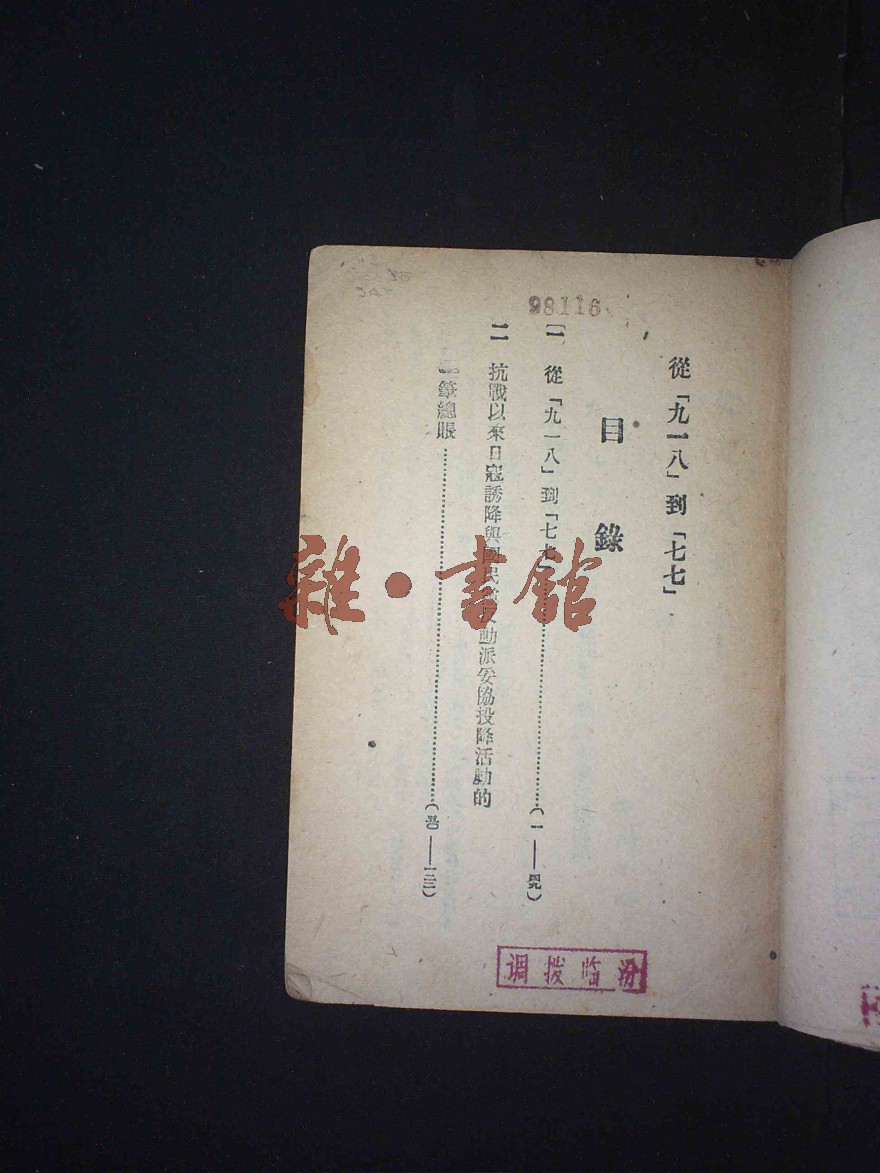 98116
從「九一八」到「七七」
目錄
一 從「九一八」到「七七」……(一——咒)
二 抗戰以來日寇誘降與國民黨反動派妥協投降活動的
一筆總賬……(——一三三)
雜·書館
调拨临汾